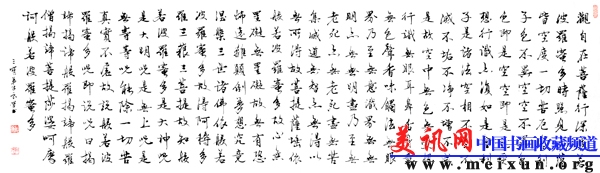 觀自在菩薩行深般若
波羅蜜多時照見五蘊
皆空度一切苦厄舍利
子色不異空空不異色
色即是空空即是色受
想行識亦復如是舍利
子是諸法空相不生不
滅不垢不淨不增不減
是故空中無色無受想
行識無眼耳鼻舌身意
無色聲香味觸法無眼
界乃至無意識界無無
明亦無無明盡乃至無
老死亦無老死盡無苦
集滅道無智亦無得以無
所得故菩提薩埵依
般若波羅蜜多故心無
罣礙無罣礙故無有恐
怖遠離顛倒夢想究竟
涅槃三世諸佛依般若
波羅蜜多故得阿耨多
羅三藐三菩提故知般
若波羅蜜多是大神咒
是大明咒是無上咒是
無等等咒能除一切苦
真實不虛故說般若波
羅蜜多咒即說咒曰揭
諦揭諦般羅揭諦般羅
僧揭諦菩提薩婆訶摩
訶般若波羅蜜多
美讯网
中国书画收藏频道
www.meixun.org